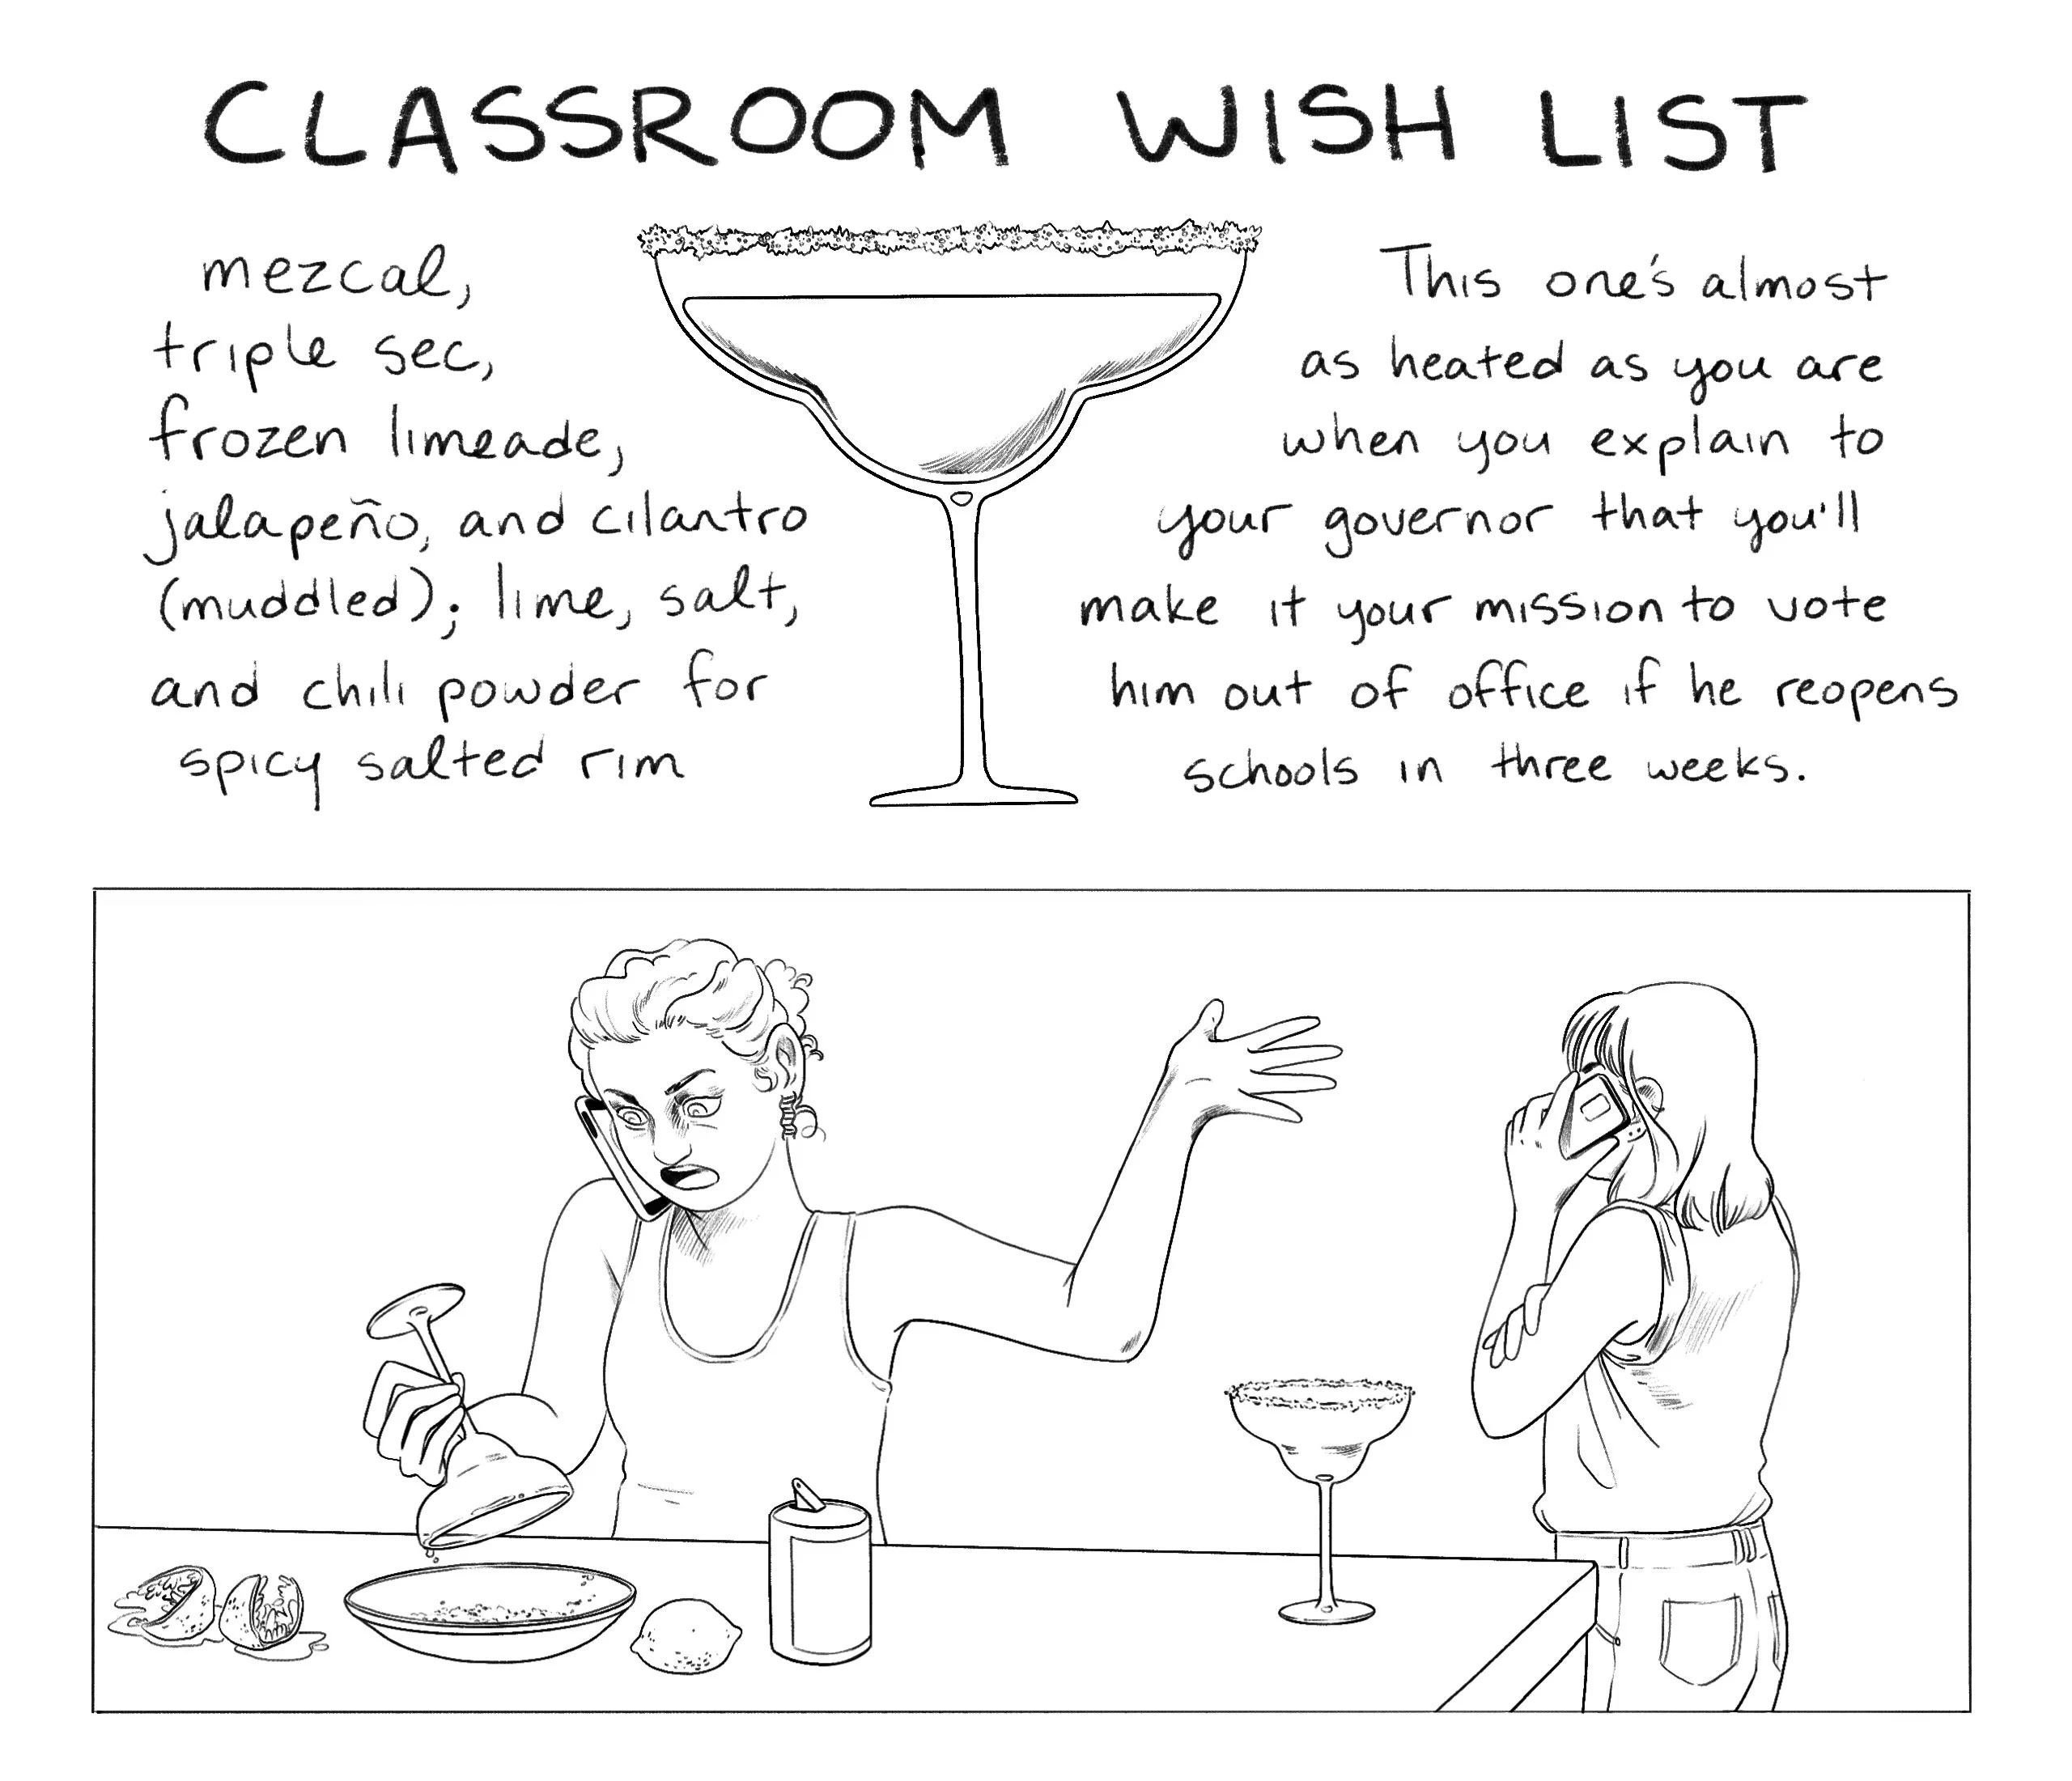 CLASSROOM WISH LIST
mezcal,
triple sec,
frozen limeade,
jalapeño, and cilantro
(muddled); lime, salt,
and chili powder for
spicy salted rim
This one's almost
as heated as you are
when you explain to
your governor that you'll
make it your mission to vote
him out of office if he reopens
schools in three weeks.